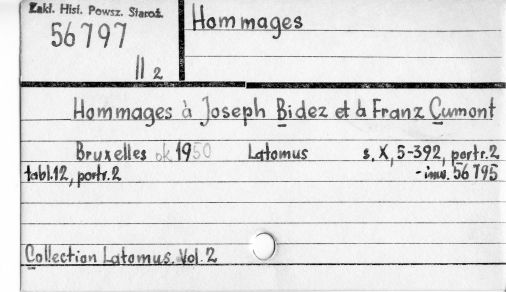 Zakł. Hist. Powsz. Staroż.
56797
II 2
Hommages
Hommages à Joseph Bidez et à Franz Cumont
Bruxelles ok. 1950 Latomus s. X, 5-392, portr. 2
tabl. 12, portr. 2 - inw. 56795
Collection Latomus. Vol. 2